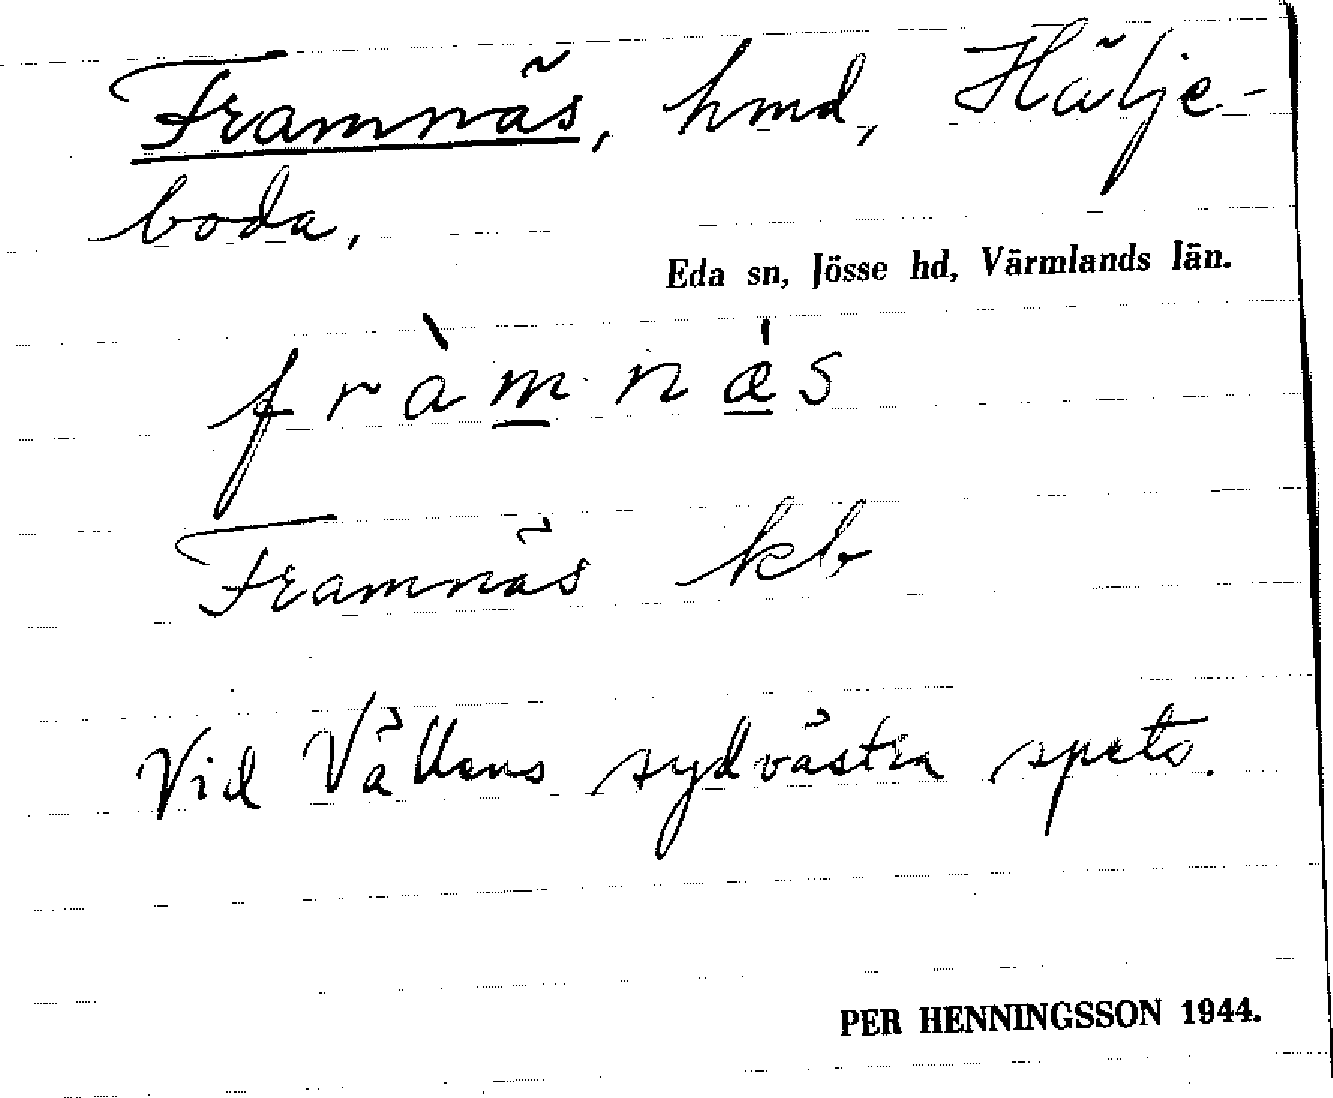 Framnäs, hmd, Hälje-
boda.
Eda sn, Jösse hd, Värmlands län.
fràmnæ̀s
Framnäs kb
Vid Vällens sydvästra spets.
PER HENNINGSSON 1944.